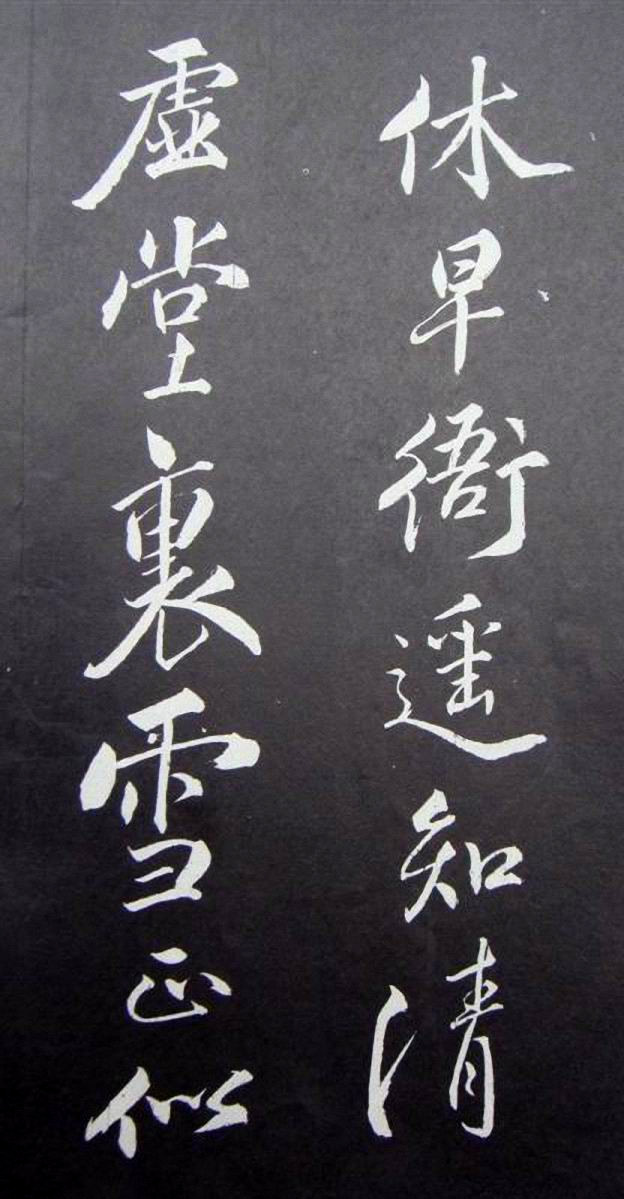 休早衙遥知清
虚堂裏雪正似